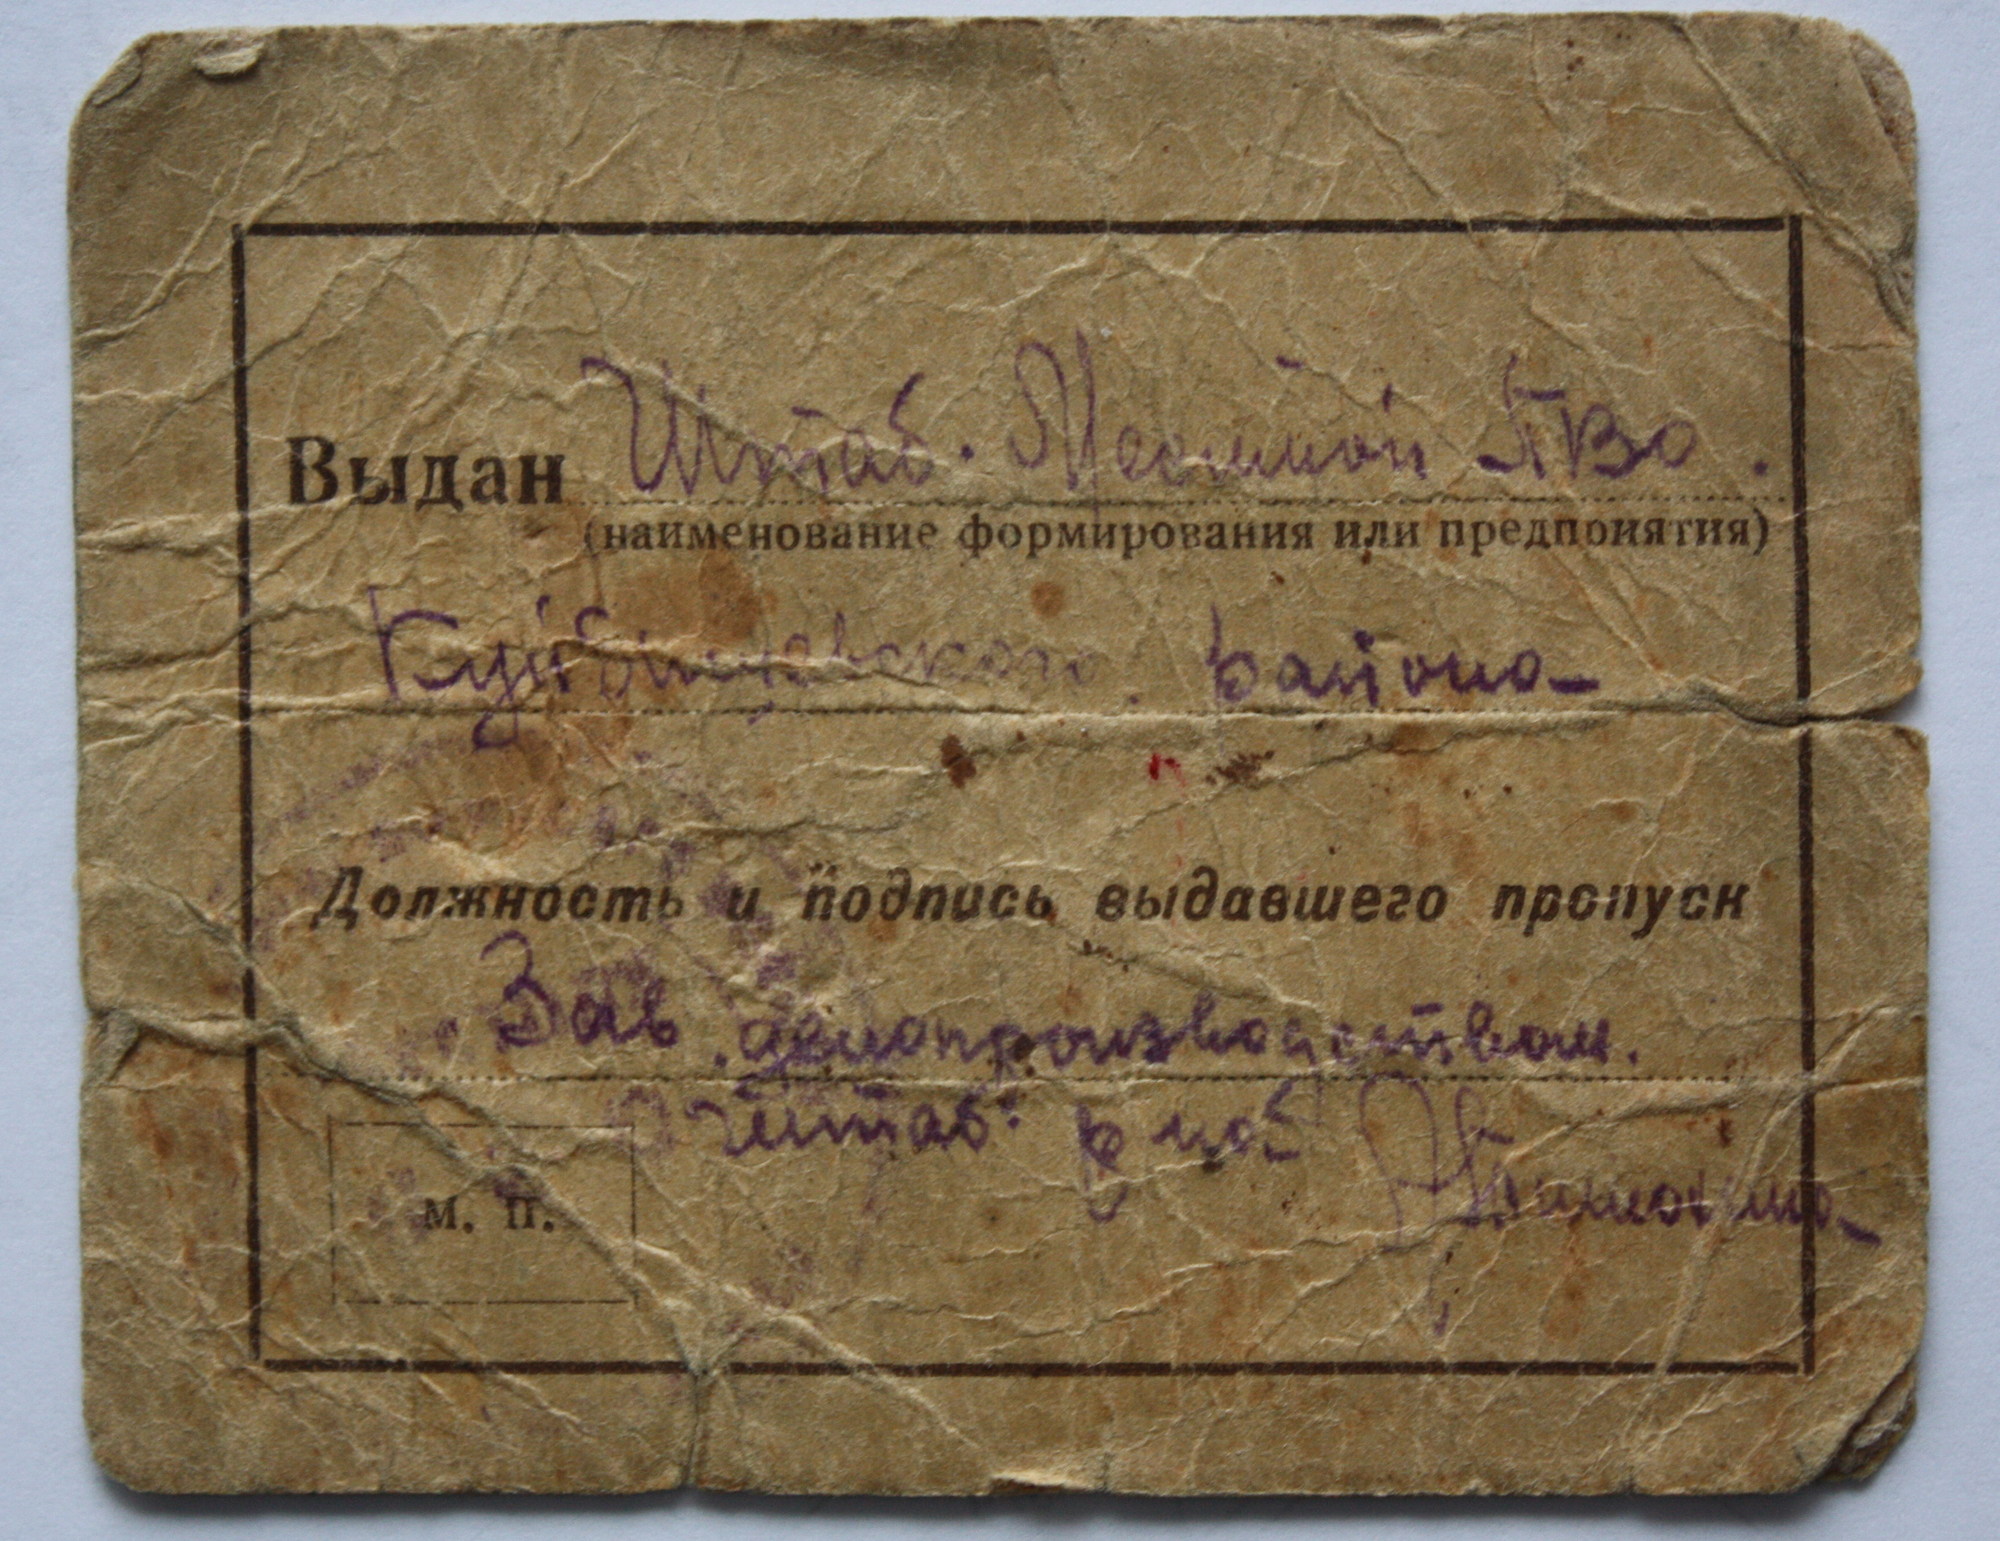 Выдан Штаб. Местной ПВО.
(наименование формирования или предприятия)
Куйбышевского района
Должность и подпись выдавшего пропуск
Зав. делопроизводством.
Штаб.
М. П.